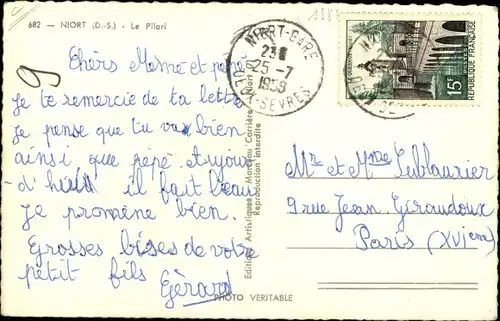 682 - NIORT (D.-S.) - Le Pilori
9
Chèrs Mémé et pépé
Je te remercie de ta lettre
Je pense que tu vas bien
ainsi que pépé. Aujour
d'hui il fait beau
Je promène bien.
Grosses bises de votre
petit fils
Gérard
Editions Artistiques
Reproduction interdite
PHOTO VERITABLE
NIORT-GARE
25-7
1958
DEUX-SEVRES
15F
REPUBLIQUE FRANÇAISE
Mr et Mme Lublaurier
9 rue Jean Giraudoux
Paris (XVIem)